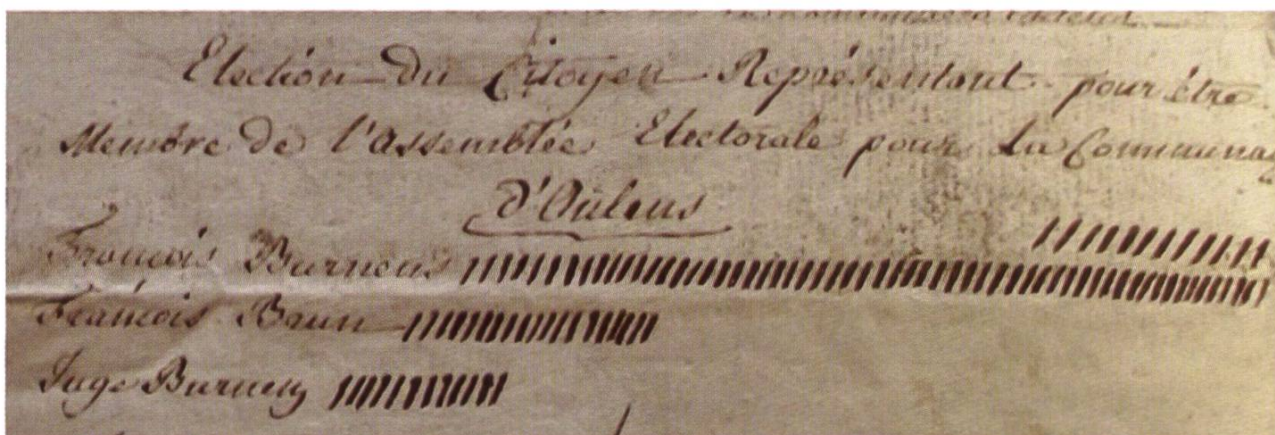 Election du Citoyen Représentant pour être
Membre de l'assemblée Electorale pour La
d'Oulens
François Burnens
François Brun
Juge Burnens